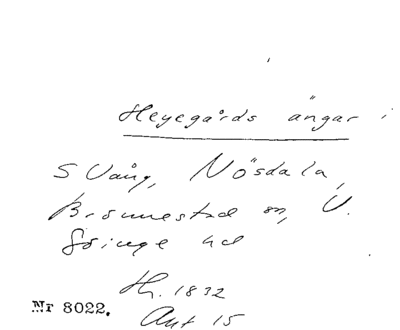 Heyegårds ängar i
S Vång, Nösdala,
Brönnestad sn, V.
Göinge hd
Hf. 1832
Akt 15
Nr 8022.